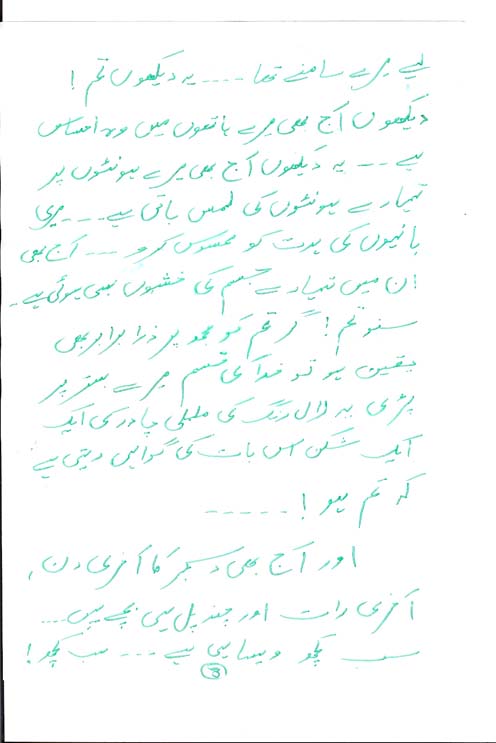 لیے میرے سامنے تھا ---- یہ دیکھوں تم !
دیکھوں آج بھی میرے ہاتھوں میں وہ احساس
ہے --- یہ دیکھوں آج بھی میرے ہونٹوں پر
تمہارے ہونٹوں کی لمس باقی ہے --- میری
بانہوں کی حدت کو محسوس کرو --- آج بھی
ان میں تمہارے جسم کی خشبوں بسی ہوئی ہے۔
سنو تم ! گر تم کو مجھ پر ذرا برابر بھی
یقین ہو تو خدا کی قسم میرے بستر پر
پڑی یہ لال رنگ کی ململی چادر کی ایک
ایک شکن اس بات کی گواہی دیتی ہے
کہ تم ہو ! -----
اور آج بھی دسمبر کا آخری دن،
آخری رات اور چند پل ہی بچے ہیں ...
سب کچھ ویسا ہی ہے --- سب کچھ !
3